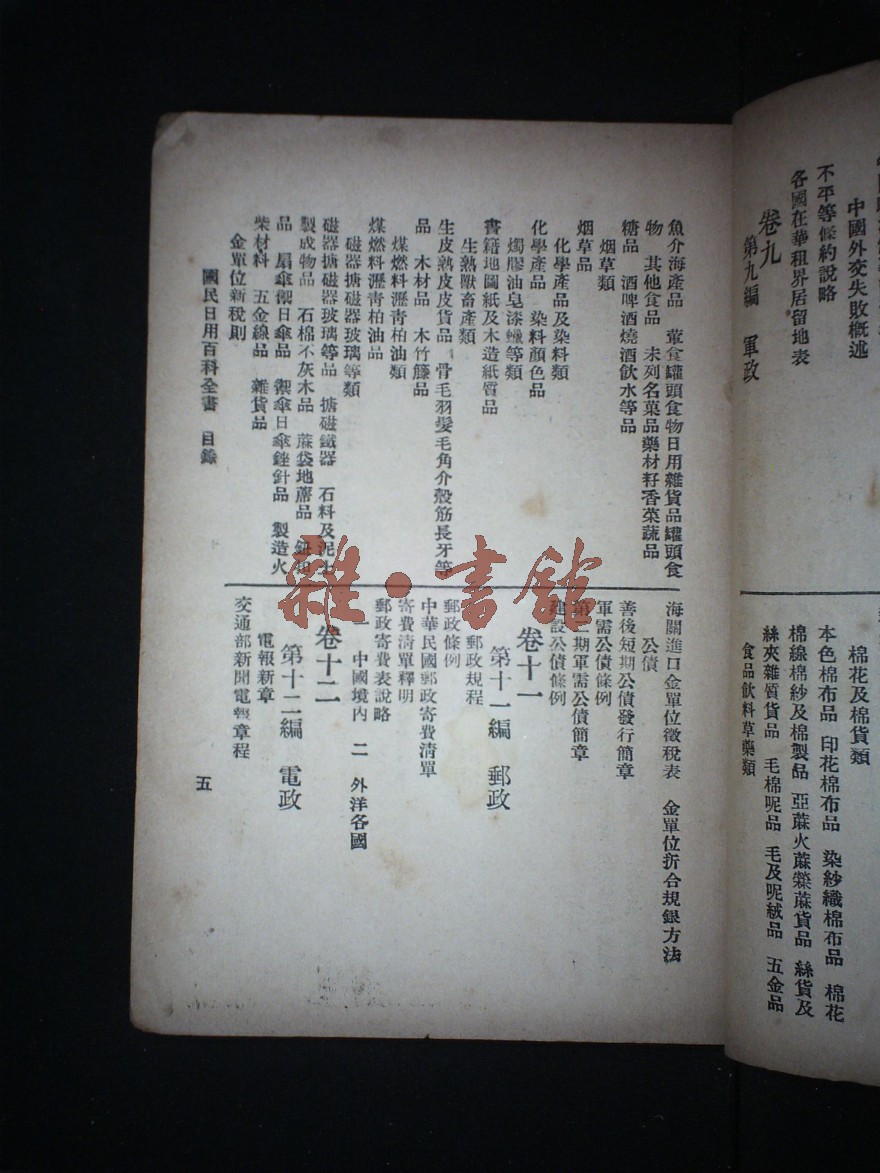 中國外交失敗概述
不平等條約說略
各國在華租界居留地表
卷九
第九編 軍政
棉花及棉貨類
本色棉布品 印花棉布品 染紗織棉布品 棉花
棉線棉紗及棉製品 亞蔴火蔴檾蔴貨品 絲貨及
絲夾雜質貨品 毛棉呢品 毛及呢絨品 五金品
食品飲料草藥類
魚介海產品 葷食罐頭食物日用雜貨品罐頭食
物 其他食品 未列名菓品藥材籽香菜蔬品
糖品 酒啤酒燒酒飲水等品
烟草類
烟草品
化學產品及染料類
化學產品 染料顏色品
燭膠油皂漆蠟等類
書籍地圖紙及木造紙質品
生熟獸畜產類
生皮熟皮皮貨品 骨毛羽髮毛角介殼筋長牙等
品 木材品 木竹籐品
煤燃料瀝青柏油類
煤燃料瀝青柏油品
磁器搪磁器玻璃等類
磁器搪磁器玻璃等品 搪磁鐵器 石料及泥土
製成物品 石棉不灰木品 蔴袋地蓆品 鈕扣
品 扇傘禦日傘品 禦傘日傘銼針品 製造火
柴材料 五金線品 雜貨品
金單位新稅則
國民日用百科全書 目錄
海關進口金單位徵稅表 金單位折合規銀方法
公債
善後短期公債發行簡章
軍需公債條例
第二期軍需公債簡章
建設公債條例
卷十一
第十一編 郵政
郵政規程
郵政條例
中華民國郵政寄費清單
寄費清單釋明
郵政寄費表說略
一 中國境內 二 外洋各國
卷十二
第十二編 電政
電報新章
交通部新聞電報章程
五
雜·書館